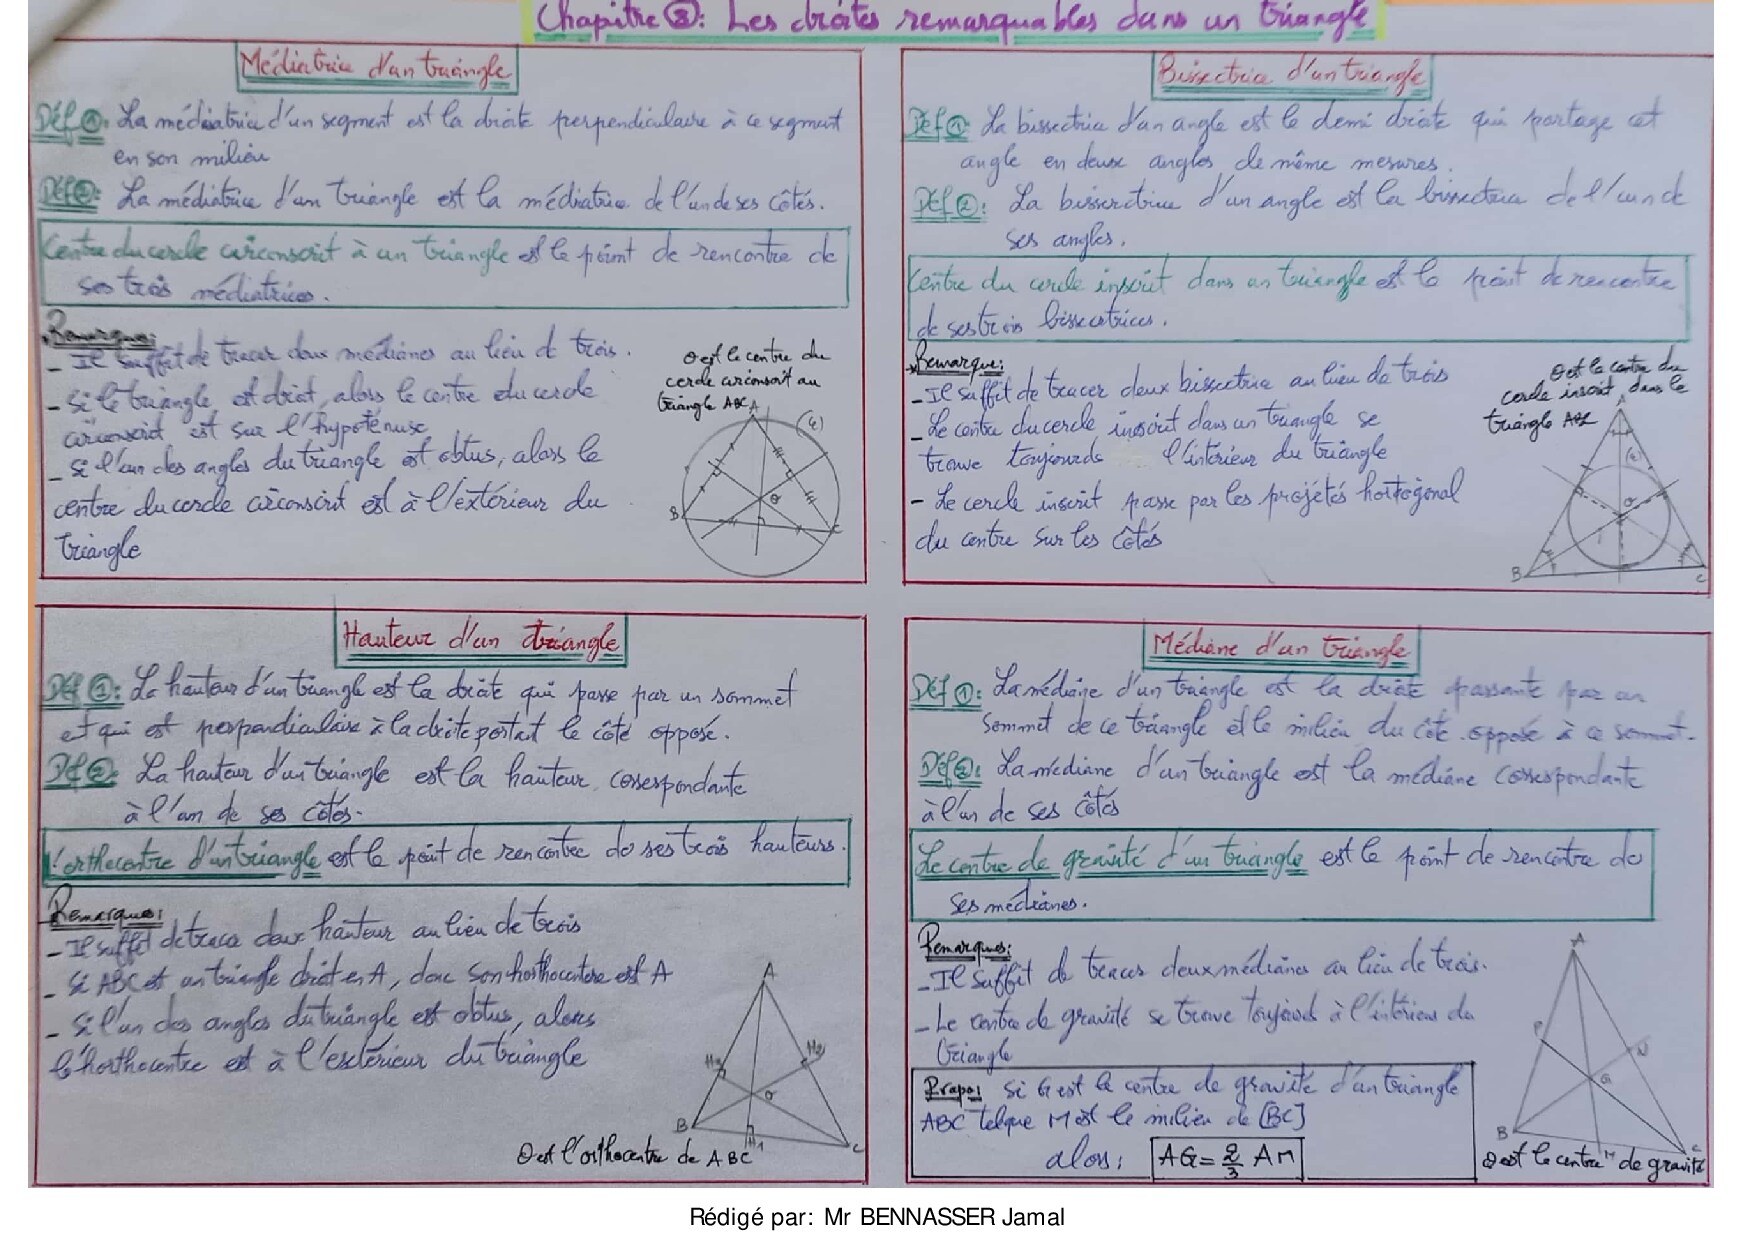 Chapitre ⑧: Les droites remarquables dans un triangle
Médiatrice d'un triangle
Déf ①: La médiatrice d'un segment est la droite perpendiculaire à ce segment
en son milieu
Déf ②: La médiatrice d'un triangle est la médiatrice de l'un de ses côtés.
Centre du cercle circonscrit à un triangle est le point de rencontre de
ses trois médiatrices.
Remarques:
- Il suffit de tracer deux médianes au lieu de trois.
- Si le triangle est droit, alors le centre du cercle
circonscrit est sur l'hypoténuse
- Si l'un des angles du triangle est obtus, alors le
centre du cercle circonscrit est à l'extérieur du
triangle
O est le centre du
cercle circonscrit au
triangle ABC
A
(C)
O
B
C
Bissectrice d'un triangle
Déf ①: La bissectrice d'un angle est le demi droite qui partage cet
angle en deux angles de même mesures.
Déf ②: La bissectrice d'un angle est la bissectrice de l'un de
ses angles.
Centre du cercle inscrit dans un triangle est le point de rencontre
de ses trois bissectrices.
Remarque:
- Il suffit de tracer deux bissectrice au lieu de trois
- Le centre du cercle inscrit dans un triangle se
trouve toujours l'intérieur du triangle
- Le cercle inscrit passe par les projetés horthogonal
du centre sur les côtés
O est le centre du
cercle inscrit dans le
triangle ABC
A
(C)
O
B
C
Hauteur d'un triangle
Déf ①: La hauteur d'un triangle est la droite qui passe par un sommet
et qui est perpendiculaire à la droite portant le côté opposé.
Déf ②: La hauteur d'un triangle est la hauteur correspondante
à l'un de ses côtés.
L'orthocentre d'un triangle est le point de rencontre de ses trois hauteurs.
Remarques:
- Il suffit de trace deux hauteur au lieu de trois
- Si ABC est un triangle droit en A, donc son horthocentre est A
- Si l'un des angles du triangle est obtus, alors
l'horthocentre est à l'extérieur du triangle
A
H3
H2
O
B
H1
C
O est l'orthocentre de ABC
Médiane d'un triangle
Déf ①: La médiane d'un triangle est la droite passante par un
sommet de ce triangle et le milieu du côté opposé à ce sommet.
Déf ②: La médiane d'un triangle est la médiane correspondante
à l'un de ses côtés
Le centre de gravité d'un triangle est le point de rencontre de
ses médianes.
Remarques:
- Il suffit de tracer deux médianes au lieu de trois.
- Le centre de gravité se trouve toujours à l'intérieur du
triangle
Propo: Si G est le centre de gravité d'un triangle
ABC telque M est le milieu de [BC]
alors: AG = 2/3 AM
A
P
N
G
B
M
C
O est le centre de gravité
Rédigé par: Mr BENNASSER Jamal